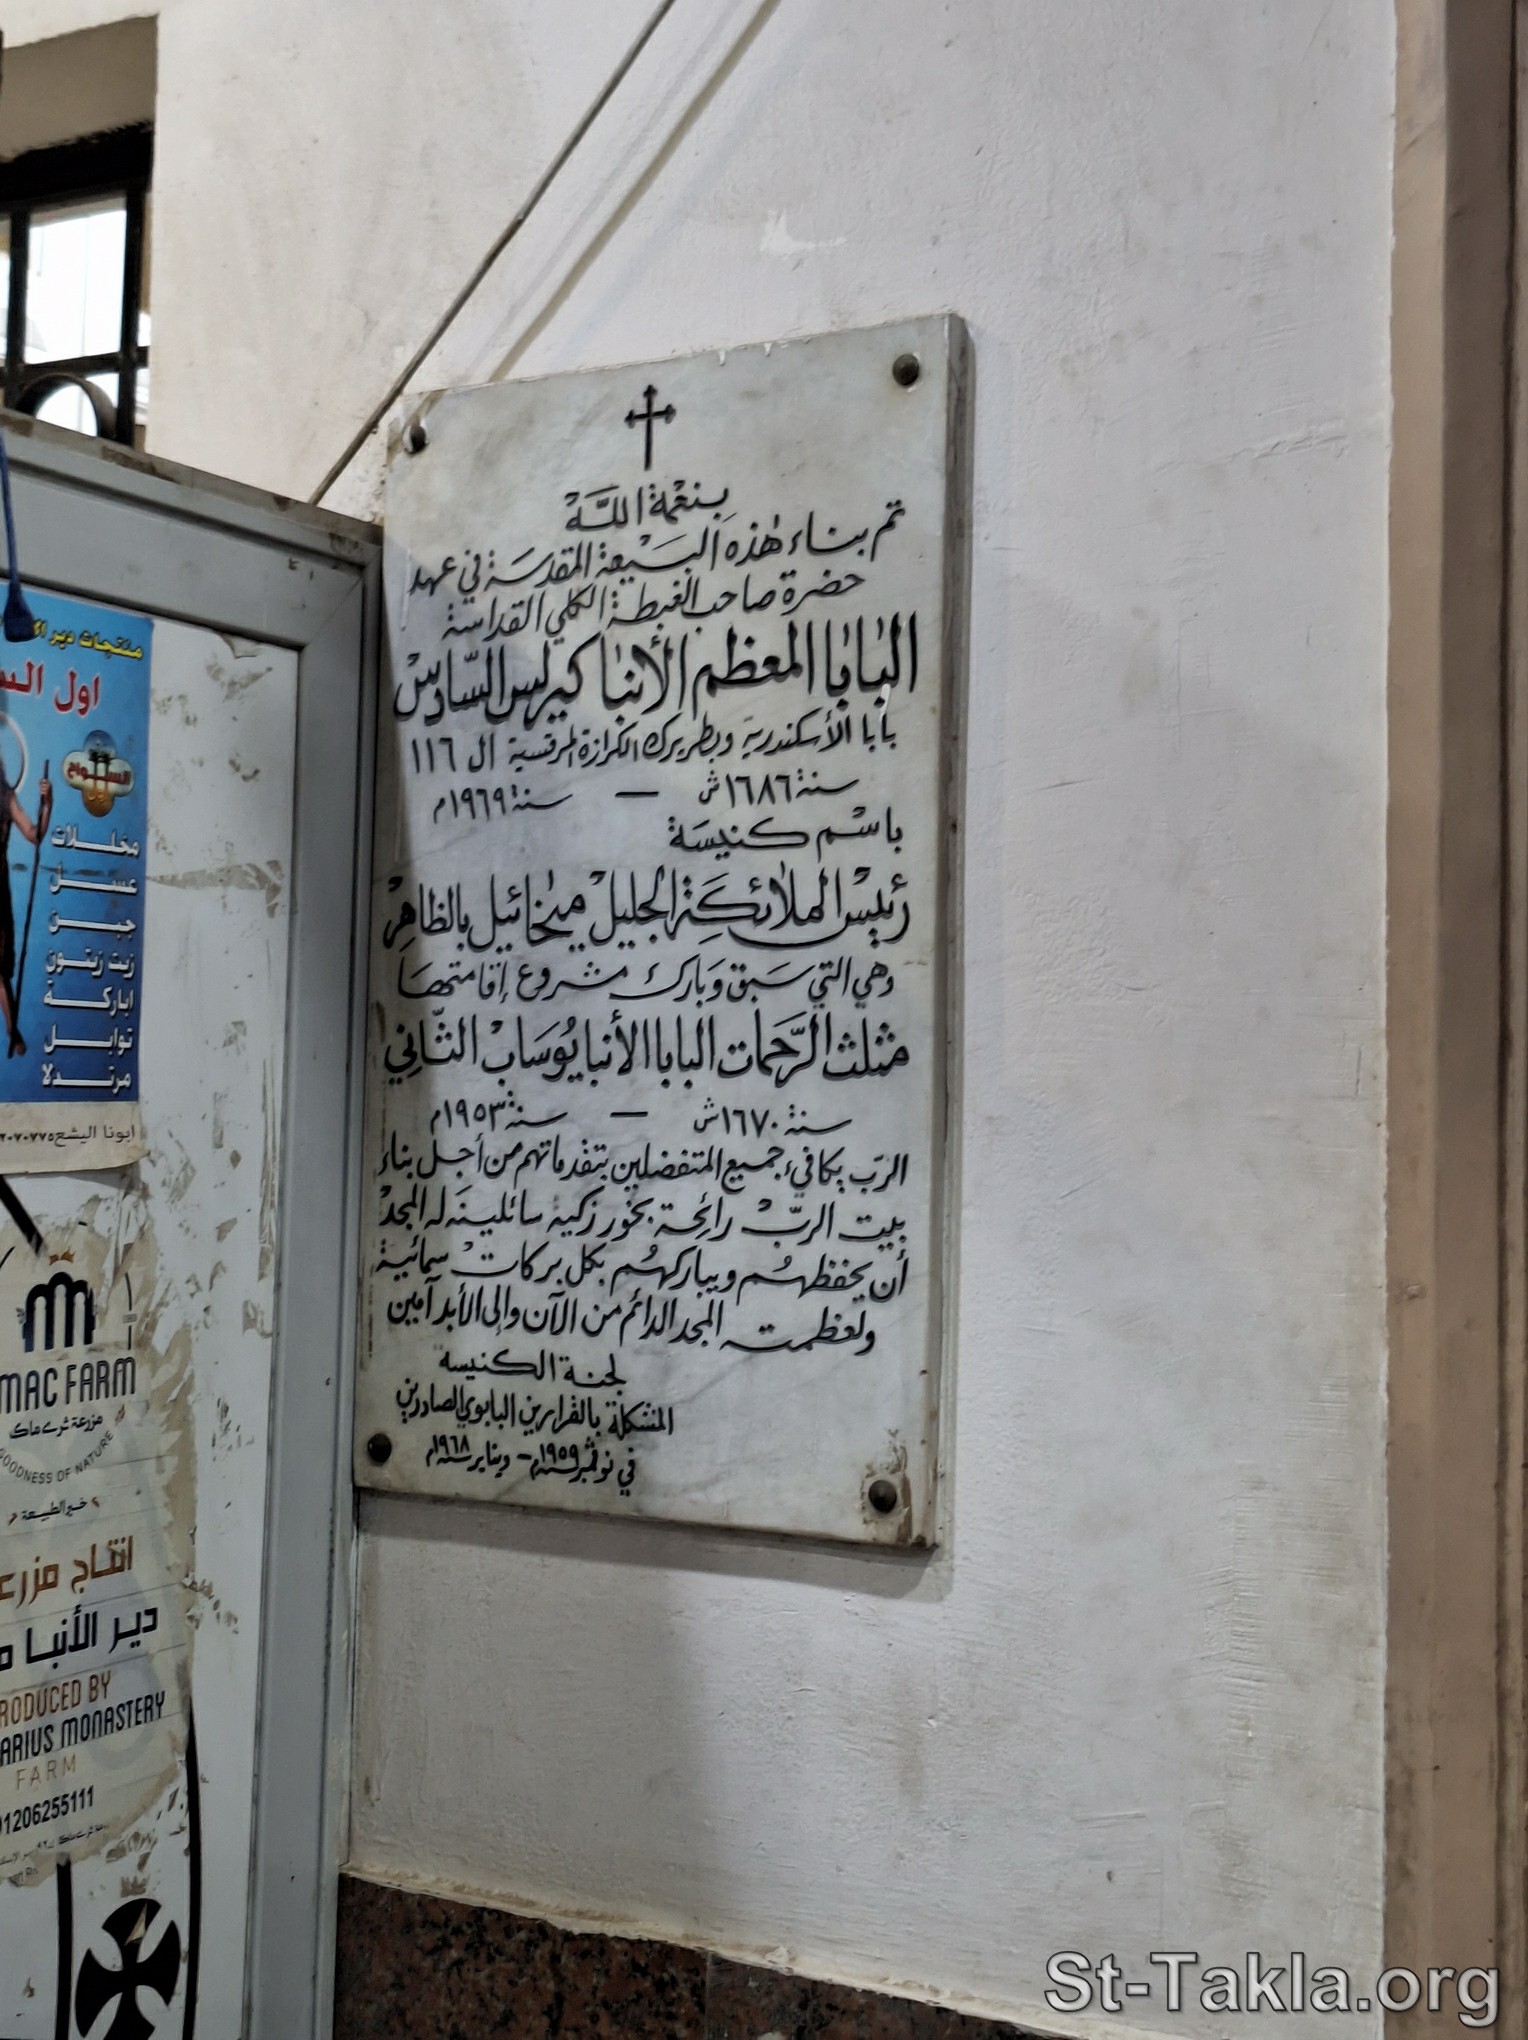 بنعمة الله
تم بناء هذه البيعة المقدسة في عهد
حضرة صاحب الغبطة الكلي القداسة
البابا المعظم الأنبا كيرلس السادس
بابا الأسكندرية وبطريرك الكرازة المرقسية ال ١١٦
سنة ١٦٨٦ش — سنة ١٩٦٩م
باسم كنيسة
رئيس الملائكة الجليل ميخائيل بالظاهر
وهي التي سبق وبارك مشروع إقامتها
مثلث الرحمات البابا الأنبا يوساب الثاني
سنة ١٦٧٠ش — سنة ١٩٥٣م
الرب يكافئ جميع المتفضلين بتقدماتهم من أجل بناء
بيت الرب رائحة بخور زكية سائلينه له المجد
أن يحفظهم ويباركهم بكل بركات سمائية
ولعظمته المجد الدائم من الآن وإلى الأبد آمين
لجنة الكنيسة
المشكلة بالقرارين البابوي الصادرين
في نوڤمبر سنة ١٩٥٩م – ويناير سنة ١٩٦٨م
منتجات دير
اول
السواح
مخللات
عسل
جبن
زيت زيتون
اباركة
توابل
مرتدلا
ابونا اليشع
MAC FARM
مزرعة ثري ماك
GOODNESS OF NATURE
خير الطبيعة
انتاج
دير الأنبا
BY
MONASTERY
FARM
01206255111
St-Takla.org